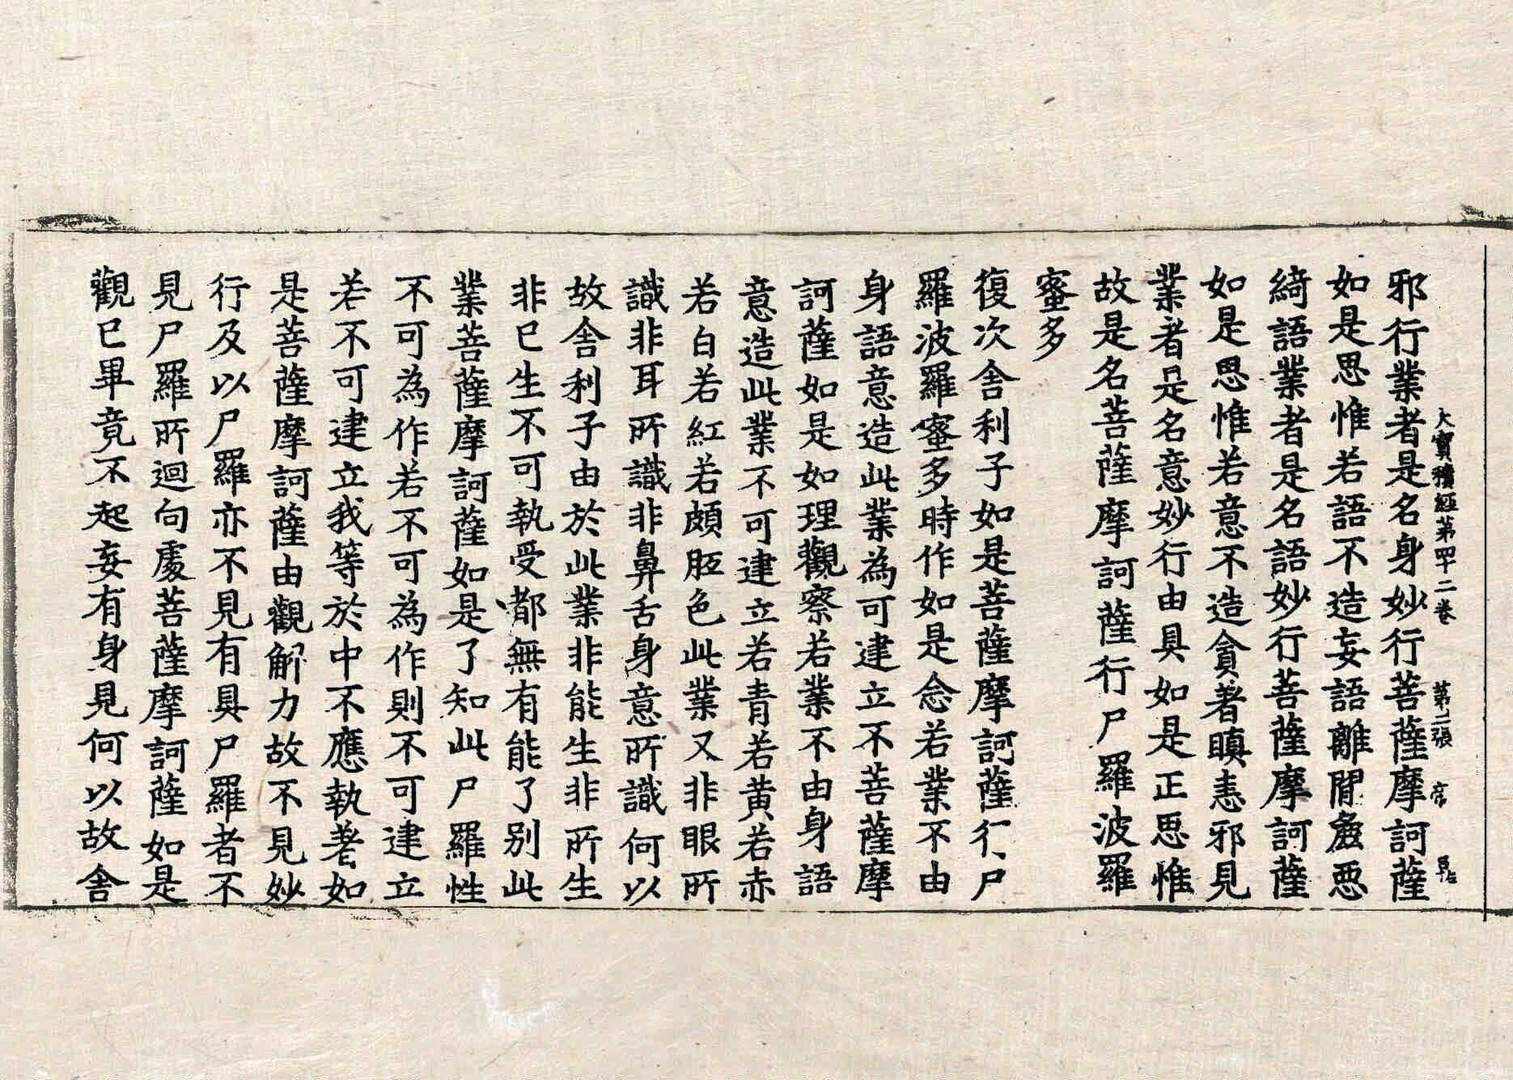 大寶積經第四十二卷 第二張 官
邪行業者是名身妙行菩薩摩訶薩
如是思惟若語不造妄語離間麁惡
綺語業者是名語妙行菩薩摩訶薩
如是思惟若意不造貪著瞋恚邪見
業者是名意妙行由具如是正思惟
故是名菩薩摩訶薩行尸羅波羅
蜜多
復次舍利子如是菩薩摩訶薩行尸
羅波羅蜜多時作如是念若業不由
身語意造此業為可建立不菩薩摩
訶薩如是如理觀察若業不由身語
意造此業不可建立若青若黃若赤
若白若紅若頗胝色此業又非眼所
識非耳所識非鼻舌身意所識何以
故舍利子由於此業非能生非所生
非已生不可執受都無有能了別此
業菩薩摩訶薩如是了知此尸羅性
不可為作若不可為作則不可建立
若不可建立我等於中不應執著如
是菩薩摩訶薩由觀解力故不見妙
行及以尸羅亦不見有具尸羅者不
見尸羅所迴向處菩薩摩訶薩如是
觀已畢竟不起妄有身見何以故舍